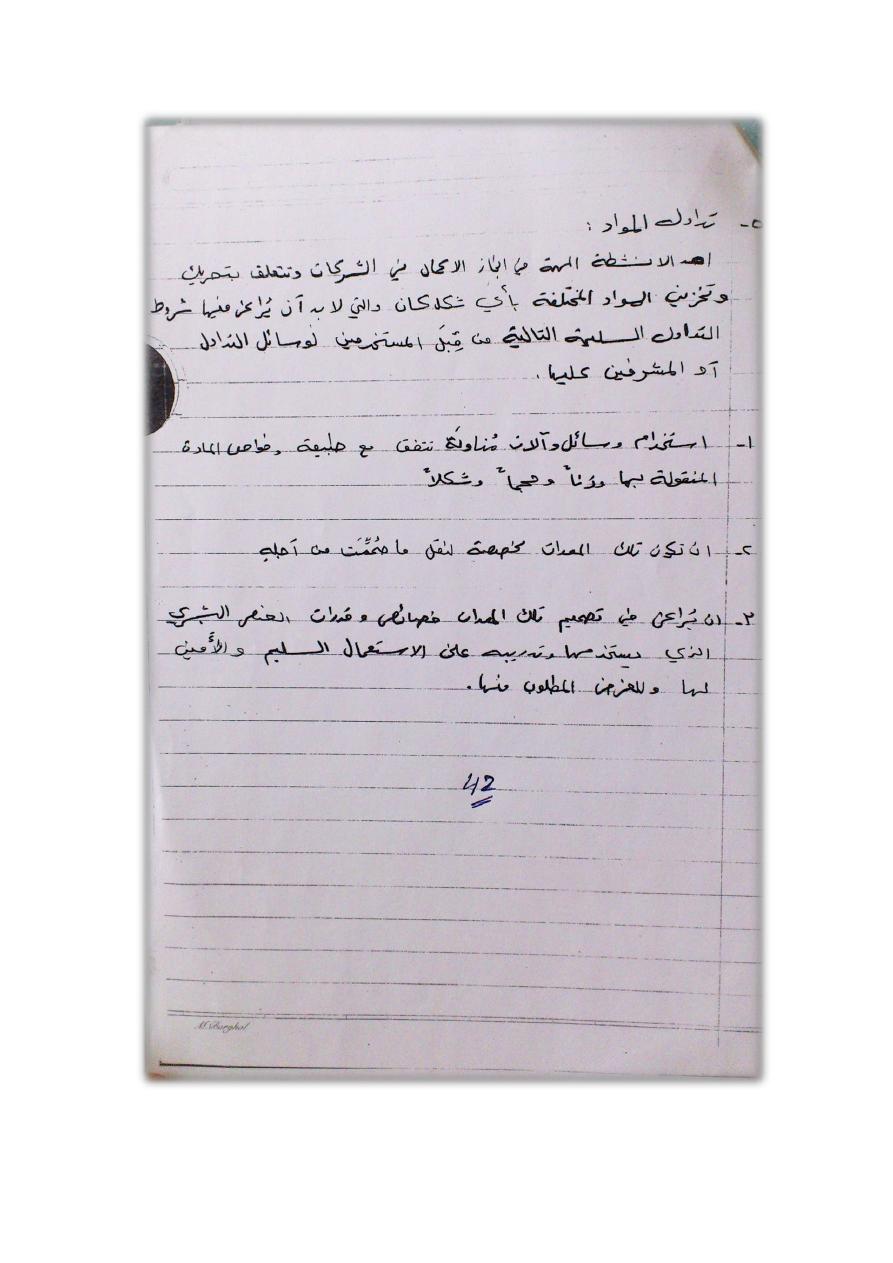 ٥- تداول المواد :
احد الانشطة المهمة في انجاز الاعمال في الشركات وتتعلق بتحريك
وتخزين المواد المختلفة بأي شكل كان والتي لا بد آن يُراعى فيها شروط
التداول السليمة التالية من قِبَل المستخدمين لوسائل التداول
آو المشرفين عليها .
١- استخدام وسائل وآلات مُناولَة تتفق مع طبيعة وخواص المادة
المنقولة بها وزناً وحجماً وشكلاً
٢- ان تكون تلك المعدات مخصصة لنقل ما صُمِّمَت من آجلهِ
٣- ان يُراعى في تصميم تلك المعدات خصائص و قدرات العنصر البشري
الذي يستخدمها وتدريبه على الاستعمال السليم والأمين
لها وللغرض المطلوب منها .
42
M.Barghol